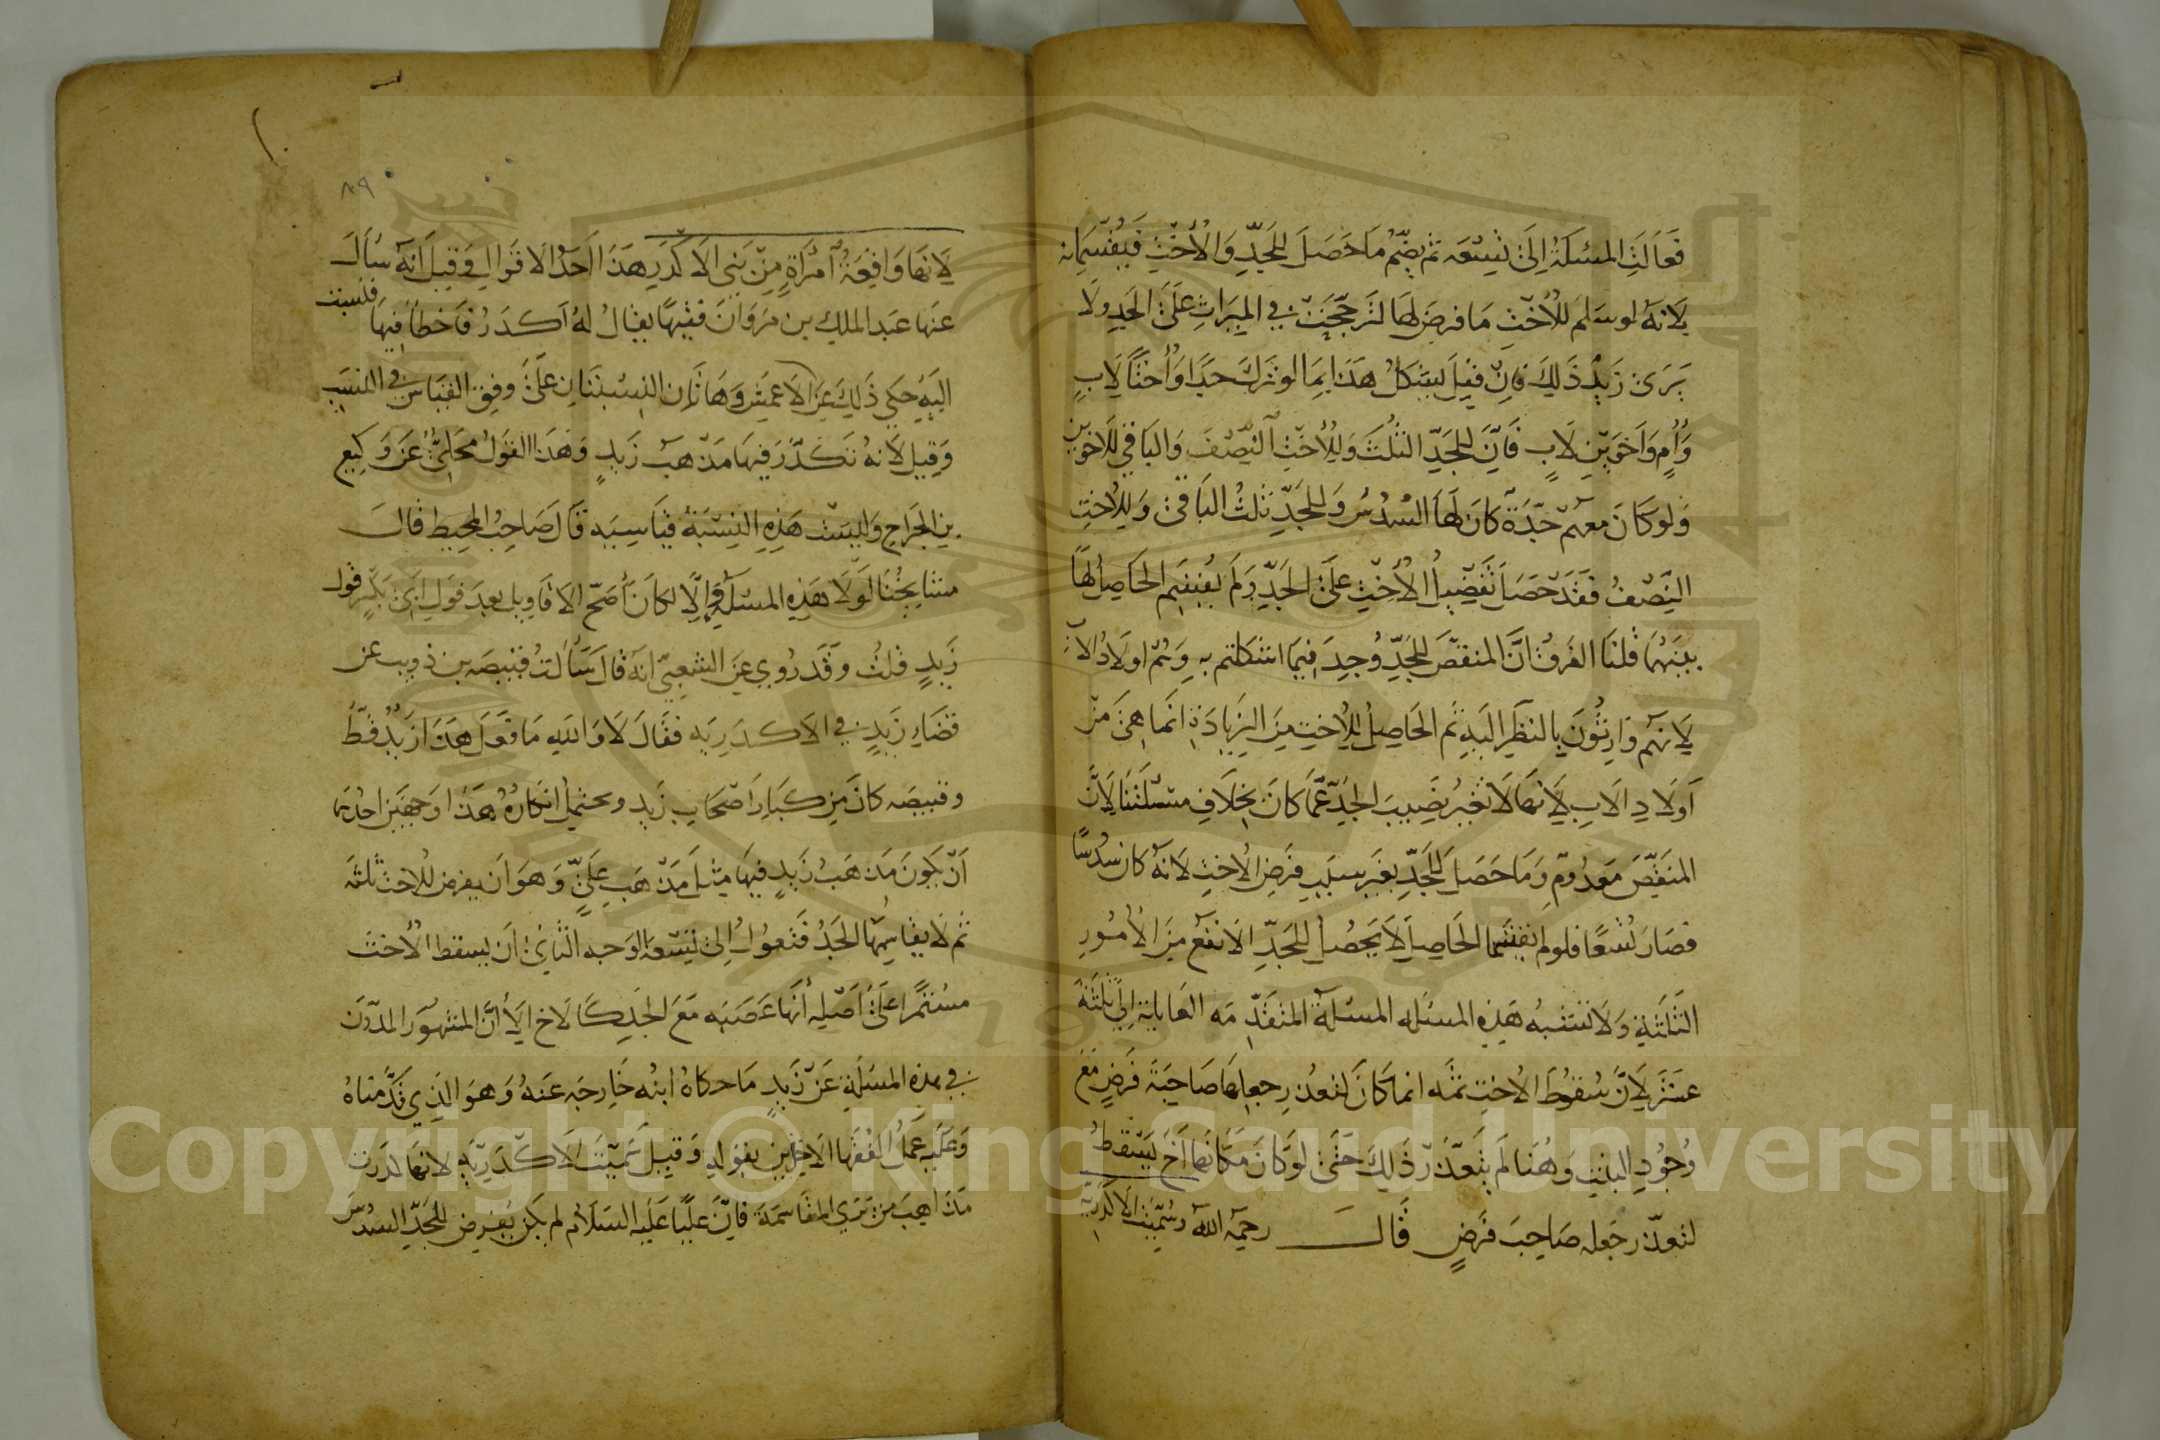 فَعَالَتِ المسْئلَةُ اِلَىٰ تِسْعَه ثم يضمّ مَا حَصَلَ للجَدِّ وَالأُخْتِ فَيُقسِّمَانه
لِاَنهُ لو سَلمَ للأُخْتِ مَا فرضَ لهَا لتَرجّحَتْ في المِيرَاثِ عَلَىَ الجَدِ ولَا
يَرَىٰ زَيدٌ ذَلِكَ فاِنْ قيلَ يشكلُ هَذَا بِمَا لو تركَ جدًا وَأُختًا لَابٍ
وَأُمٍ وَاَخَوَيْنِ لَابٍ فَاِنّ للجَدِّ الثلُثَ وَلِلأُختِ النّصْفَ وَالبَاقي للاخوين
وَلو كَانَ معهُمْ جَدّةٌ كَانَ لَهَا السُدْسُ وَللجَدِّ ثلثُ البَاقىٰ وَلِلأختِ
النِّصْفُ فقَدْ حَصَلَ تَفْضِيلُ الأُخْتِ عَلَىَ الجَدِّ وَلَم يُقسَم الحَاصِلُ لهَا
بينَهُمَا قلنَا الفَرقُ انَّ المنقّصَ للجَدِّ وُجِدَ فيمَا استشكلتم بهِ وَهُم اولَادُ الاَب
لِاَنهُم وَارِثُونَ بالنظَرِ اليَهِ ثم الحَاصِلُ للاختِ مِنَ الزِيَادَةِ انمَا هىَ منْ
اَولَادِ الَابِ لِاَنهَا لَا تغيرُ نصِيبَ الجَدِّ عمّا كانَ بخِلَافِ مسْئلَتنَا لِاَنَّ
المنَقّصَ مَعدُومٌ وَمَا حَصَلَ للجَدِّ بغَيرِ سبَبِ فَرضِ الاختِ لَانهُ كان سُدسًا
فصَارَ تُسْعًا فلو لم يقتسَما الحَاصِلَ لاَ يَحصُلُ للجَدِّ الانفَع مِنَ الأُمُورِ
الثَلثَةِ وَلَا تشبهُ هَذِهِ المسْئله المسْئلةَ المتقدّمَه العَاملة اِلىَ ثلثَةَ
عشَرَ لِاَنَّ سُقوُطَ الاختِ ثمّه انما كَانَ لتعذرِ جعلِهَا صَاحِبَةَ فَرضٍ مَعَ
وُجُودِ البنتِ وَهُنا لم يتَعذّر ذَلِكَ حَتّى لوَ كَانَ مَكَانهَا اَخٌ يَسْقطُ
لتعذّرِ جَعله صَاحِبَ فَرْضٍ قَالَ رحمَهُ اللهُ وسُمّيَتْ الاكدَريّةَ
لَانهَا وَاقِعَةُ امرَأةٍ مِنْ بَنِي الاكدَرِ هَذَا اَحَدُ الاقوَالِ وَقِيلَ انهُ سَأَلَ
عنهَا عبَد الملكِ بن مَروَانَ فقيهًا يقَالُ لهُ اَكدَرُ فاَخطَأ فِيهَا فنسبَت
اليَهِ حكِي ذَلِكَ عَن الاَعمَشِ وَهَاتَانِ النِسْبَتَانِ عَلَى وفقِ القيَاسِ في النسَب
وَقِيل لَانهُ تَكَدّرَ فيهَا مَذْهبُ زَيدٍ وَهَذَا القولُ محكيٌ عَن وَكِيع
بنِ الجَراحِ وَليسَت هَذِهِ النِسْبَة قيَاسِيَه قَالَ صَاحِبُ المحِيط قالَ
مشَايخُنَا لَولَا هَذِهِ المسْئلة وَاِلّا لكَانَ اَصحّ الاقَاويل بعدَ قَولِ اَبىٰ بَكرٍ قَول
زَيدٍ قلتُ وقَد رُوِي عَنِ الشّعِبيّ انهُ قَالَ سَأَلتُ قبيصَه بن ذويب عن
قضَاءِ زَيدٍ في الاكدَرِيَه فقَالَ لَا وَاللهِ مَا فَعَل هَذا زَيدٌ قَطّ
وقبيصَه كانَ مِن كبَارِ اَصحَابِ زَيدٍ ويحتملُ انكارُهُ هَذا وَجهيَن احدهما
اَنْ يكُونَ مَذهَبُ زَيدٍ فيهَا مِثلَ مَذْهَبِ عَلِيٍّ وَهوَ اَن يفرض للاخت ثلثه
ثم لَا يقَاسمهَا الجَدُ فتَعوُلُ اِلىٰ تِسْعَه الوَجه الثانيٰ اَن يسقط الأُختَ
مسْتمرا عَلىٰ اَصْلِهِ أنهَا عَصَبَه مَعَ الجَدِ كَالاَخِ اِلّا أَنَّ المشهوُر المدوّن
في هذه المسئلةِ عَنْ زَيدٍ مَا حكاهُ ابنُه خَارجَه عَنهُ وَهوَ الَّذِي قَدَّمناهُ
وَعَليهِ عَمَلُ الفُقَهَا الاخِذِينَ بقَولِهِ وَقيلَ سُمّيَتْ الَاكدَرِيّه لانهَا كدَرت
مَذَاهبَ مَنْ يَرَي المقَاسمَةَ فَاِنّ عَليًا عَليَهِ السَلامُ لم يكن يُفرض للجَدِّ السُدْسَ
٨٩
Copyright © King Saud University